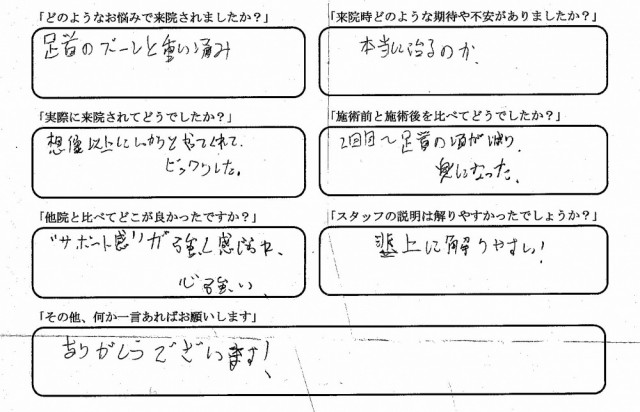 「どのようなお悩みで来院されましたか？」
足首のズーンと重い痛み
「来院時どのような期待や不安がありましたか？」
本当に治るのか
「実際に来院されてどうでしたか？」
想像以上にしっかりと
ビックリした。
「施術前と施術後を比べてどうでしたか？」
2回目〜足首の
楽になった。
「他院と比べてどこが良かったですか？」
"サポート感"が強く感じ
心強い
「スタッフの説明は解りやすかったでしょうか？」
上に解りやすい！
「その他、何か一言あればお願いします」
ありがとうございます！